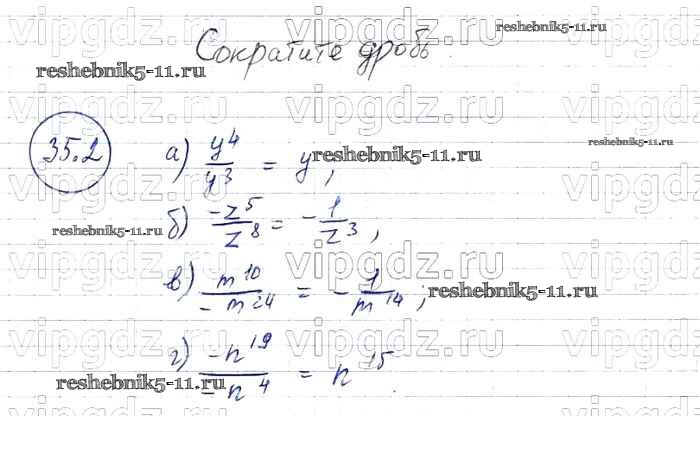 vipgdz.ru vipgdz.ru vipgdz.ru
reshebnik5-11.ru
Сократите дробь
reshebnik5-11.ru
vipgdz.ru vipgdz.ru vipgdz.ru
reshebnik5-11.ru
35.2 а) y⁴/y³ = y,
reshebnik5-11.ru
vipgdz.ru vipgdz.ru vipgdz.ru
б) -z⁵/z⁸ = -1/z³,
reshebnik5-11.ru
vipgdz.ru vipgdz.ru vipgdz.ru
в) m¹⁰/-m²⁴ = -1/m¹⁴;
reshebnik5-11.ru
vipgdz.ru vipgdz.ru vipgdz.ru
г) -n¹⁹/-n⁴ = n¹⁵.
reshebnik5-11.ru
vipgdz.ru vipgdz.ru vipgdz.ru